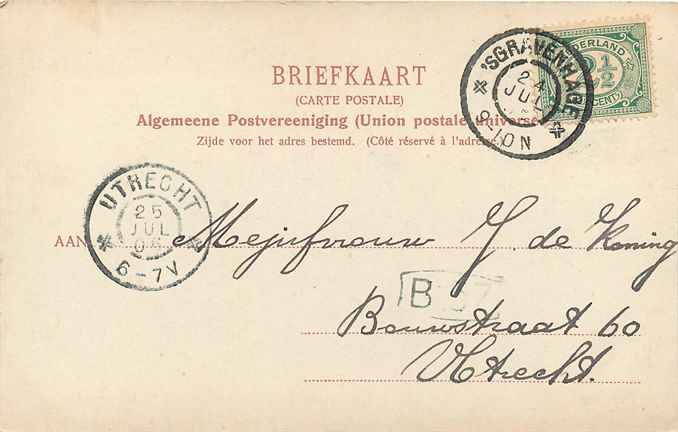 BRIEFKAART
(CARTE POSTALE)
Algemeene Postvereeniging (Union postale universe
Zijde voor het adres bestemd. (Côté réservé à l'adres
'SGRAVENHAGE
24
JUL
9-10 N
NEDERLAND
2½
CENT
UTRECHT
25
JUL
6-7V
AAN
Mejufvrouw J. de Koning
B
Bouwstraat 60
Utrecht.